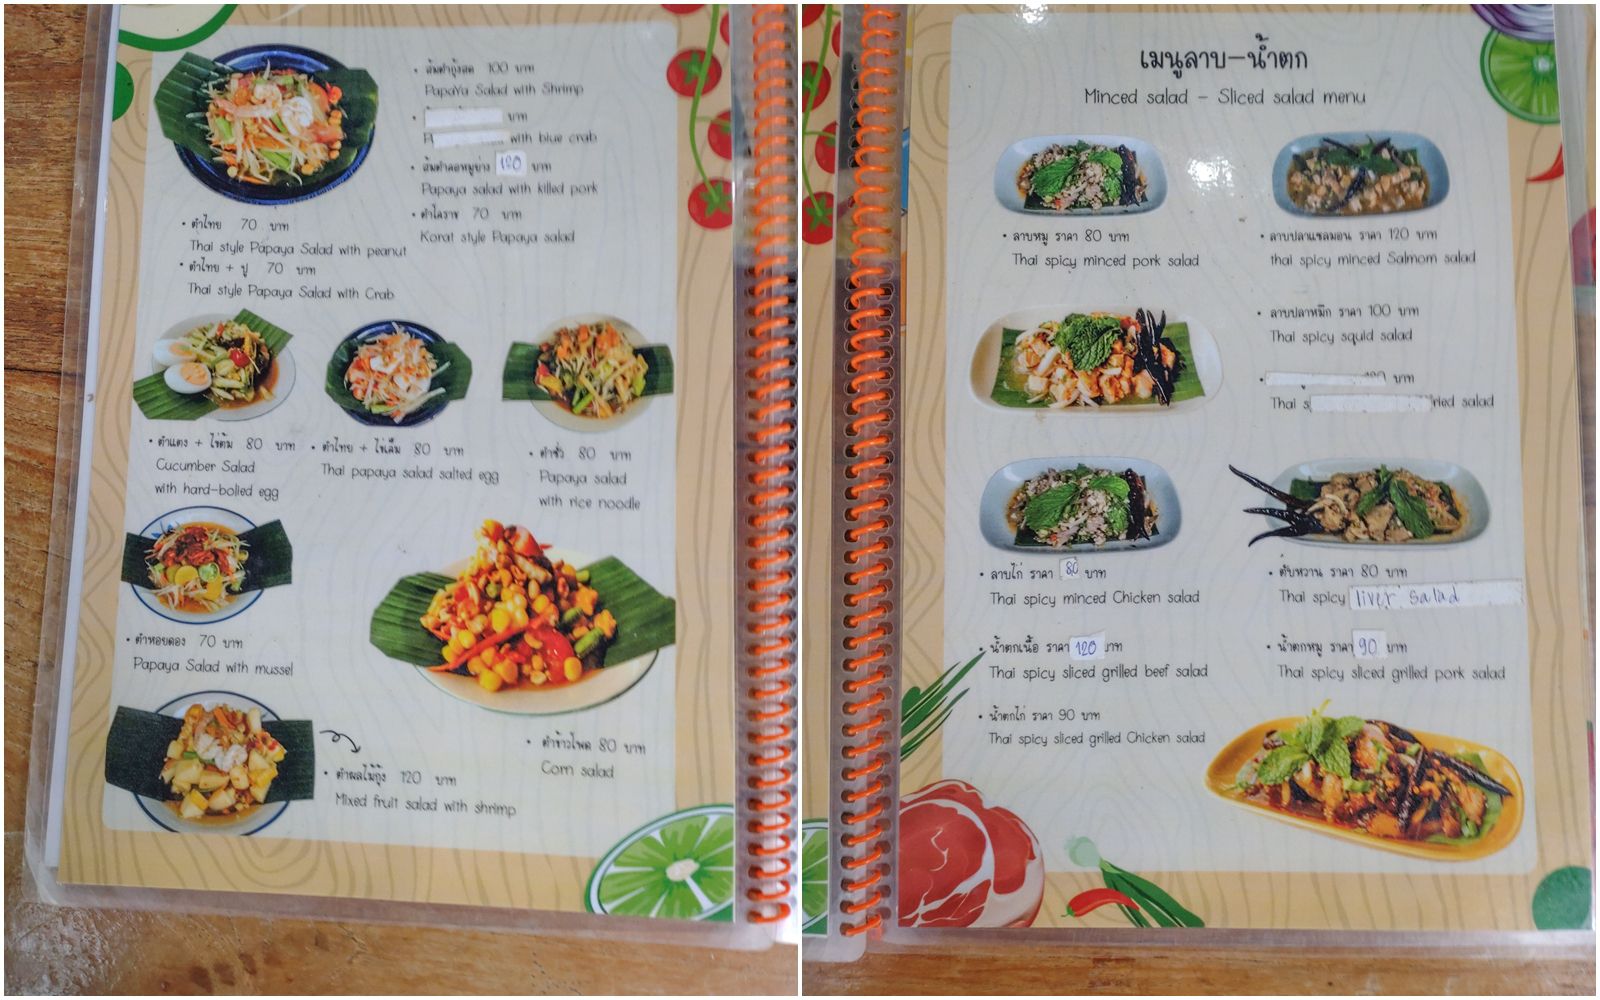 • ส้มตำกุ้งสด 100 บาท
Papaya Salad with Shrimp
• บาท
with blue crab
• ส้มตำคอหมูย่าง 120 บาท
Papaya salad with killed pork
• ตำโคราช 70 บาท
Korat style Papaya salad
• ตำไทย 70 บาท
Thai style Papaya Salad with peanut
• ตำไทย + ปู 70 บาท
Thai style Papaya Salad with Crab
• ตำแตง + ไข่ต้ม 80 บาท
Cucumber Salad
with hard-bolied egg
• ตำไทย + ไข่เค็ม 80 บาท
Thai papaya salad salted egg
• ตำซั่ว 80 บาท
Papaya salad
with rice noodle
• ตำหอยดอง 70 บาท
Papaya Salad with mussel
• ตำข้าวโพด 80 บาท
Corn salad
• ตำผลไม้กุ้ง 120 บาท
Mixed fruit salad with shrimp
เมนูลาบ-น้ำตก
Minced salad - Sliced salad menu
• ลาบหมู ราคา 80 บาท
Thai spicy minced pork salad
• ลาบปลาแซลมอน ราคา 120 บาท
thai spicy minced Salmom salad
• ลาบปลาหมึก ราคา 100 บาท
Thai spicy squid salad
• บาท
Thai salad
• ลาบไก่ ราคา 80 บาท
Thai spicy minced Chicken salad
• ตับหวาน ราคา 80 บาท
Thai spicy liver salad
• น้ำตกเนื้อ ราคา 120 บาท
Thai spicy sliced grilled beef salad
• น้ำตกหมู ราคา 90 บาท
Thai spicy sliced grilled pork salad
• น้ำตกไก่ ราคา 90 บาท
Thai spicy sliced grilled Chicken salad